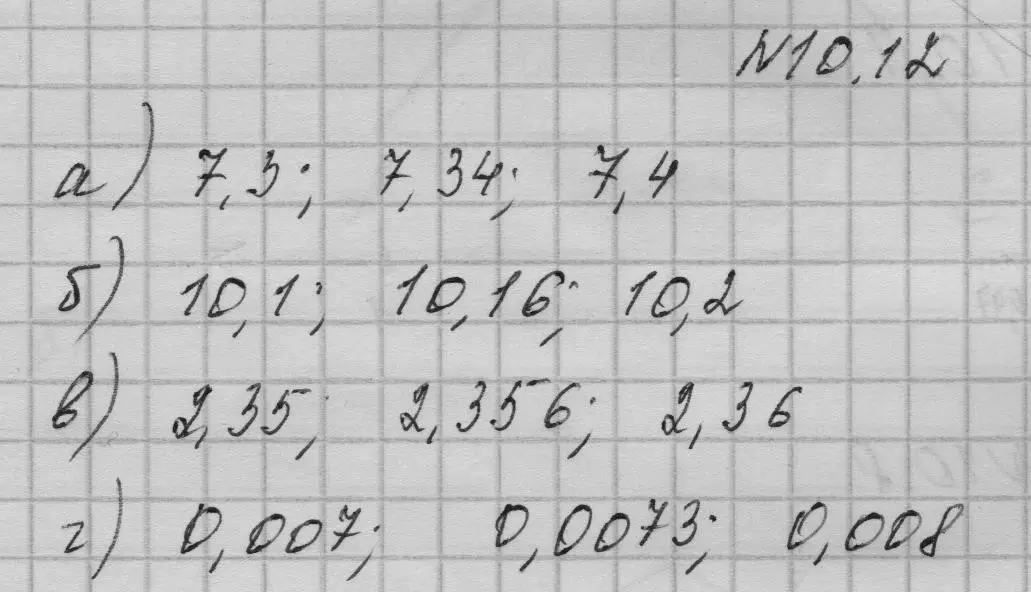 N10.12
а) 7,3; 7,34; 7,4
б) 10,1; 10,16; 10,2
в) 2,35; 2,356; 2,36
г) 0,007; 0,0073; 0,008